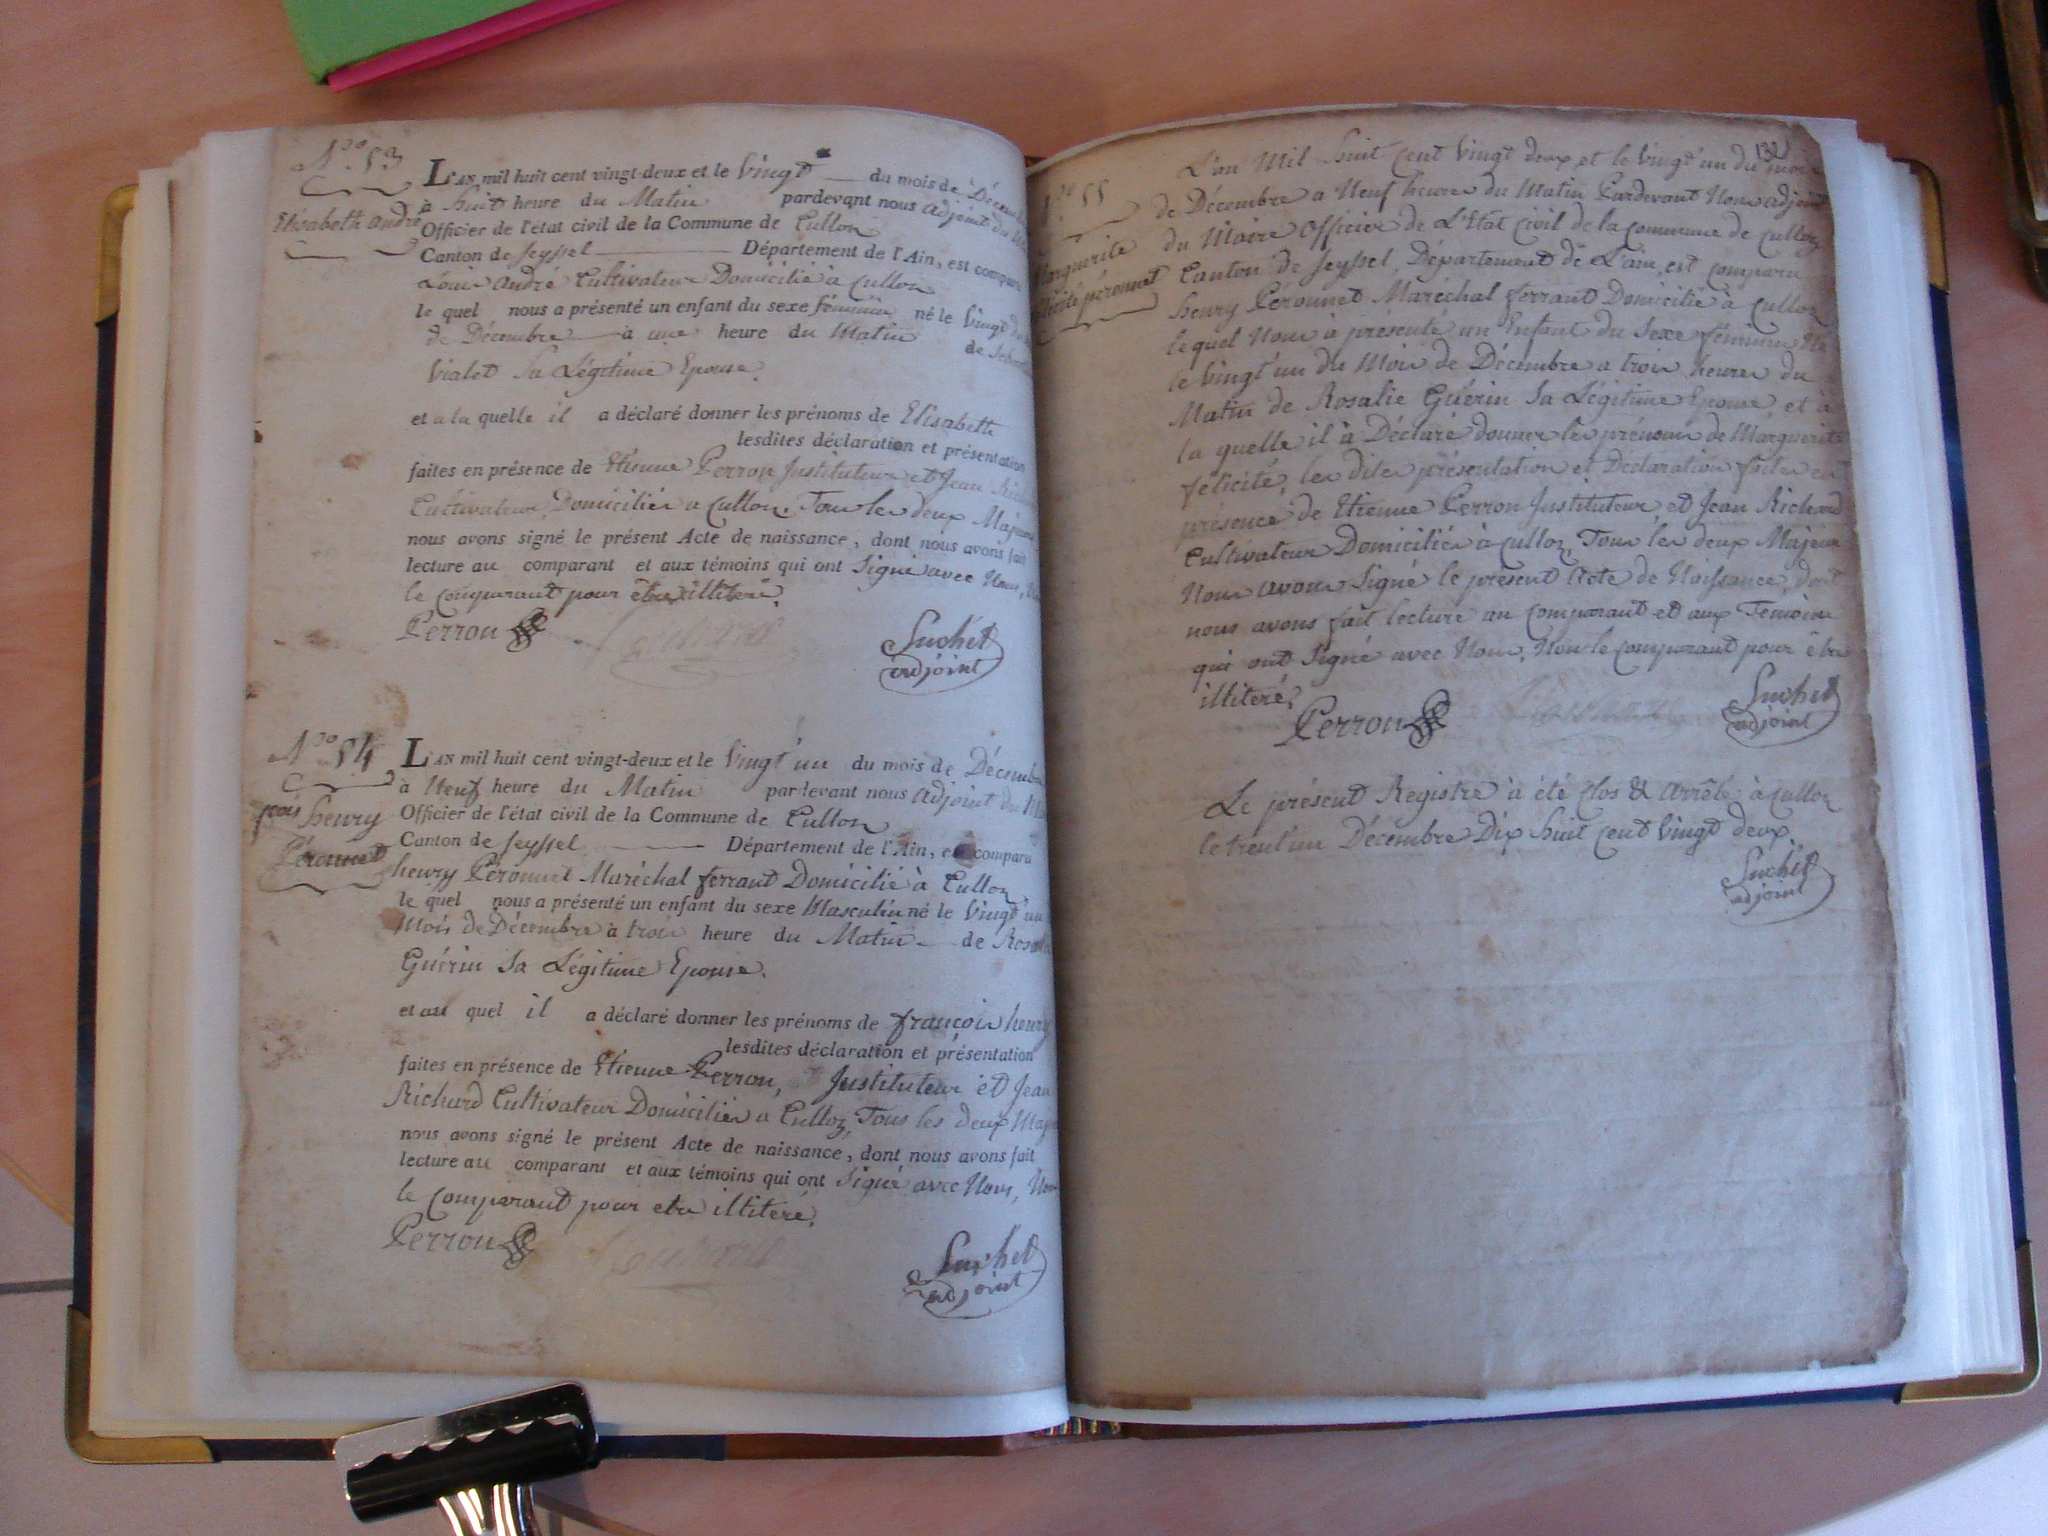 N.° 53
Elisabeth André
L'AN mil huit cent vingt-deux et le Vingt du mois de
à huit heure du Matin pardevant nous adjoint du
Officier de l'état civil de la Commune de Culloz
Canton de Seyssel Département de l'Ain, est comparu
Louis André Cultivateur Domicilié à Culloz
le quel nous a présenté un enfant du sexe féminin né le Vingt du
de Décembre à une heure du Matin de
Vialet Sa Légitime Epouse.
et a la quelle il a déclaré donner les prénoms de Elisabeth
lesdites déclaration et présentation
faites en présence de Etienne Perron Instituteur et Jean
Cultivateur Domiciliés a Culloz, Tous les deux Majeurs
nous avons signé le présent Acte de naissance, dont nous avons fait
lecture au comparant et aux témoins qui ont Signé avec Nous,
le comparant pour être illiteré.
Perron
Suchet
adjoint
N.° 54
henry
Péronnet
L'AN mil huit cent vingt-deux et le Vingt'un du mois de Décembre
à Neuf heure du Matin pardevant nous adjoint du
Officier de l'état civil de la Commune de Culloz
Canton de Seyssel Département de l'Ain, est comparu
henry Péronnet Maréchal ferrant Domicilié à Culloz
le quel nous a présenté un enfant du sexe Masculin né le Vingt'un
Mois de Décembre à trois heure du Matin de
Guérin Sa Légitime Epouse.
et au quel il a déclaré donner les prénoms de françois henry
lesdites déclaration et présentation
faites en présence de Etienne Perron, Instituteur et Jean
Richard Cultivateur Domiciliés a Culloz, Tous les deux
nous avons signé le présent Acte de naissance, dont nous avons fait
lecture au comparant et aux témoins qui ont Signé avec Nous, Non
le comparant pour etre illiteré.
Perron
Suchet
adjoint
132
N.° 55
Marguerite
félicité péronnet
L'an Mil huit cent Vingt deux et le Vingt'un du mois
de Décembre a Neuf heures du Matin Pardevant Nous adjoint
du Maire Officier de L'Etat Civil de la Commune de Culloz
Canton de Seyssel, Département de L'ain, est comparu
henry Péronnet Maréchal ferrant Domicilié à Culloz
le quel Nous à présenté un Enfant du Sexe féminin Né
le Vingt'un du Mois de Décembre a trois heures du
Matin de Rosalie Guérin Sa Légitime Epouse, et à
la quelle il à Déclaré donner les prénoms de Marguerite
félicité, les dites présentation et Déclaration faites en
présence de Etienne Perron Instituteur, et Jean Richard
Cultivateur Domiciliés à Culloz, Tous les deux Majeurs
Nous avons Signé le présent Acte de Naissance, dont
nous avons fait lecture au comparant et aux Temoins
qui ont Signé avec Nous, Non le comparant pour être
illiteré.
Perron
Suchet
adjoint
Le présent Registre à été Clos & arrêté à Culloz
le trent'un Décembre Dix huit cent Vingt deux.
Suchet
adjoint